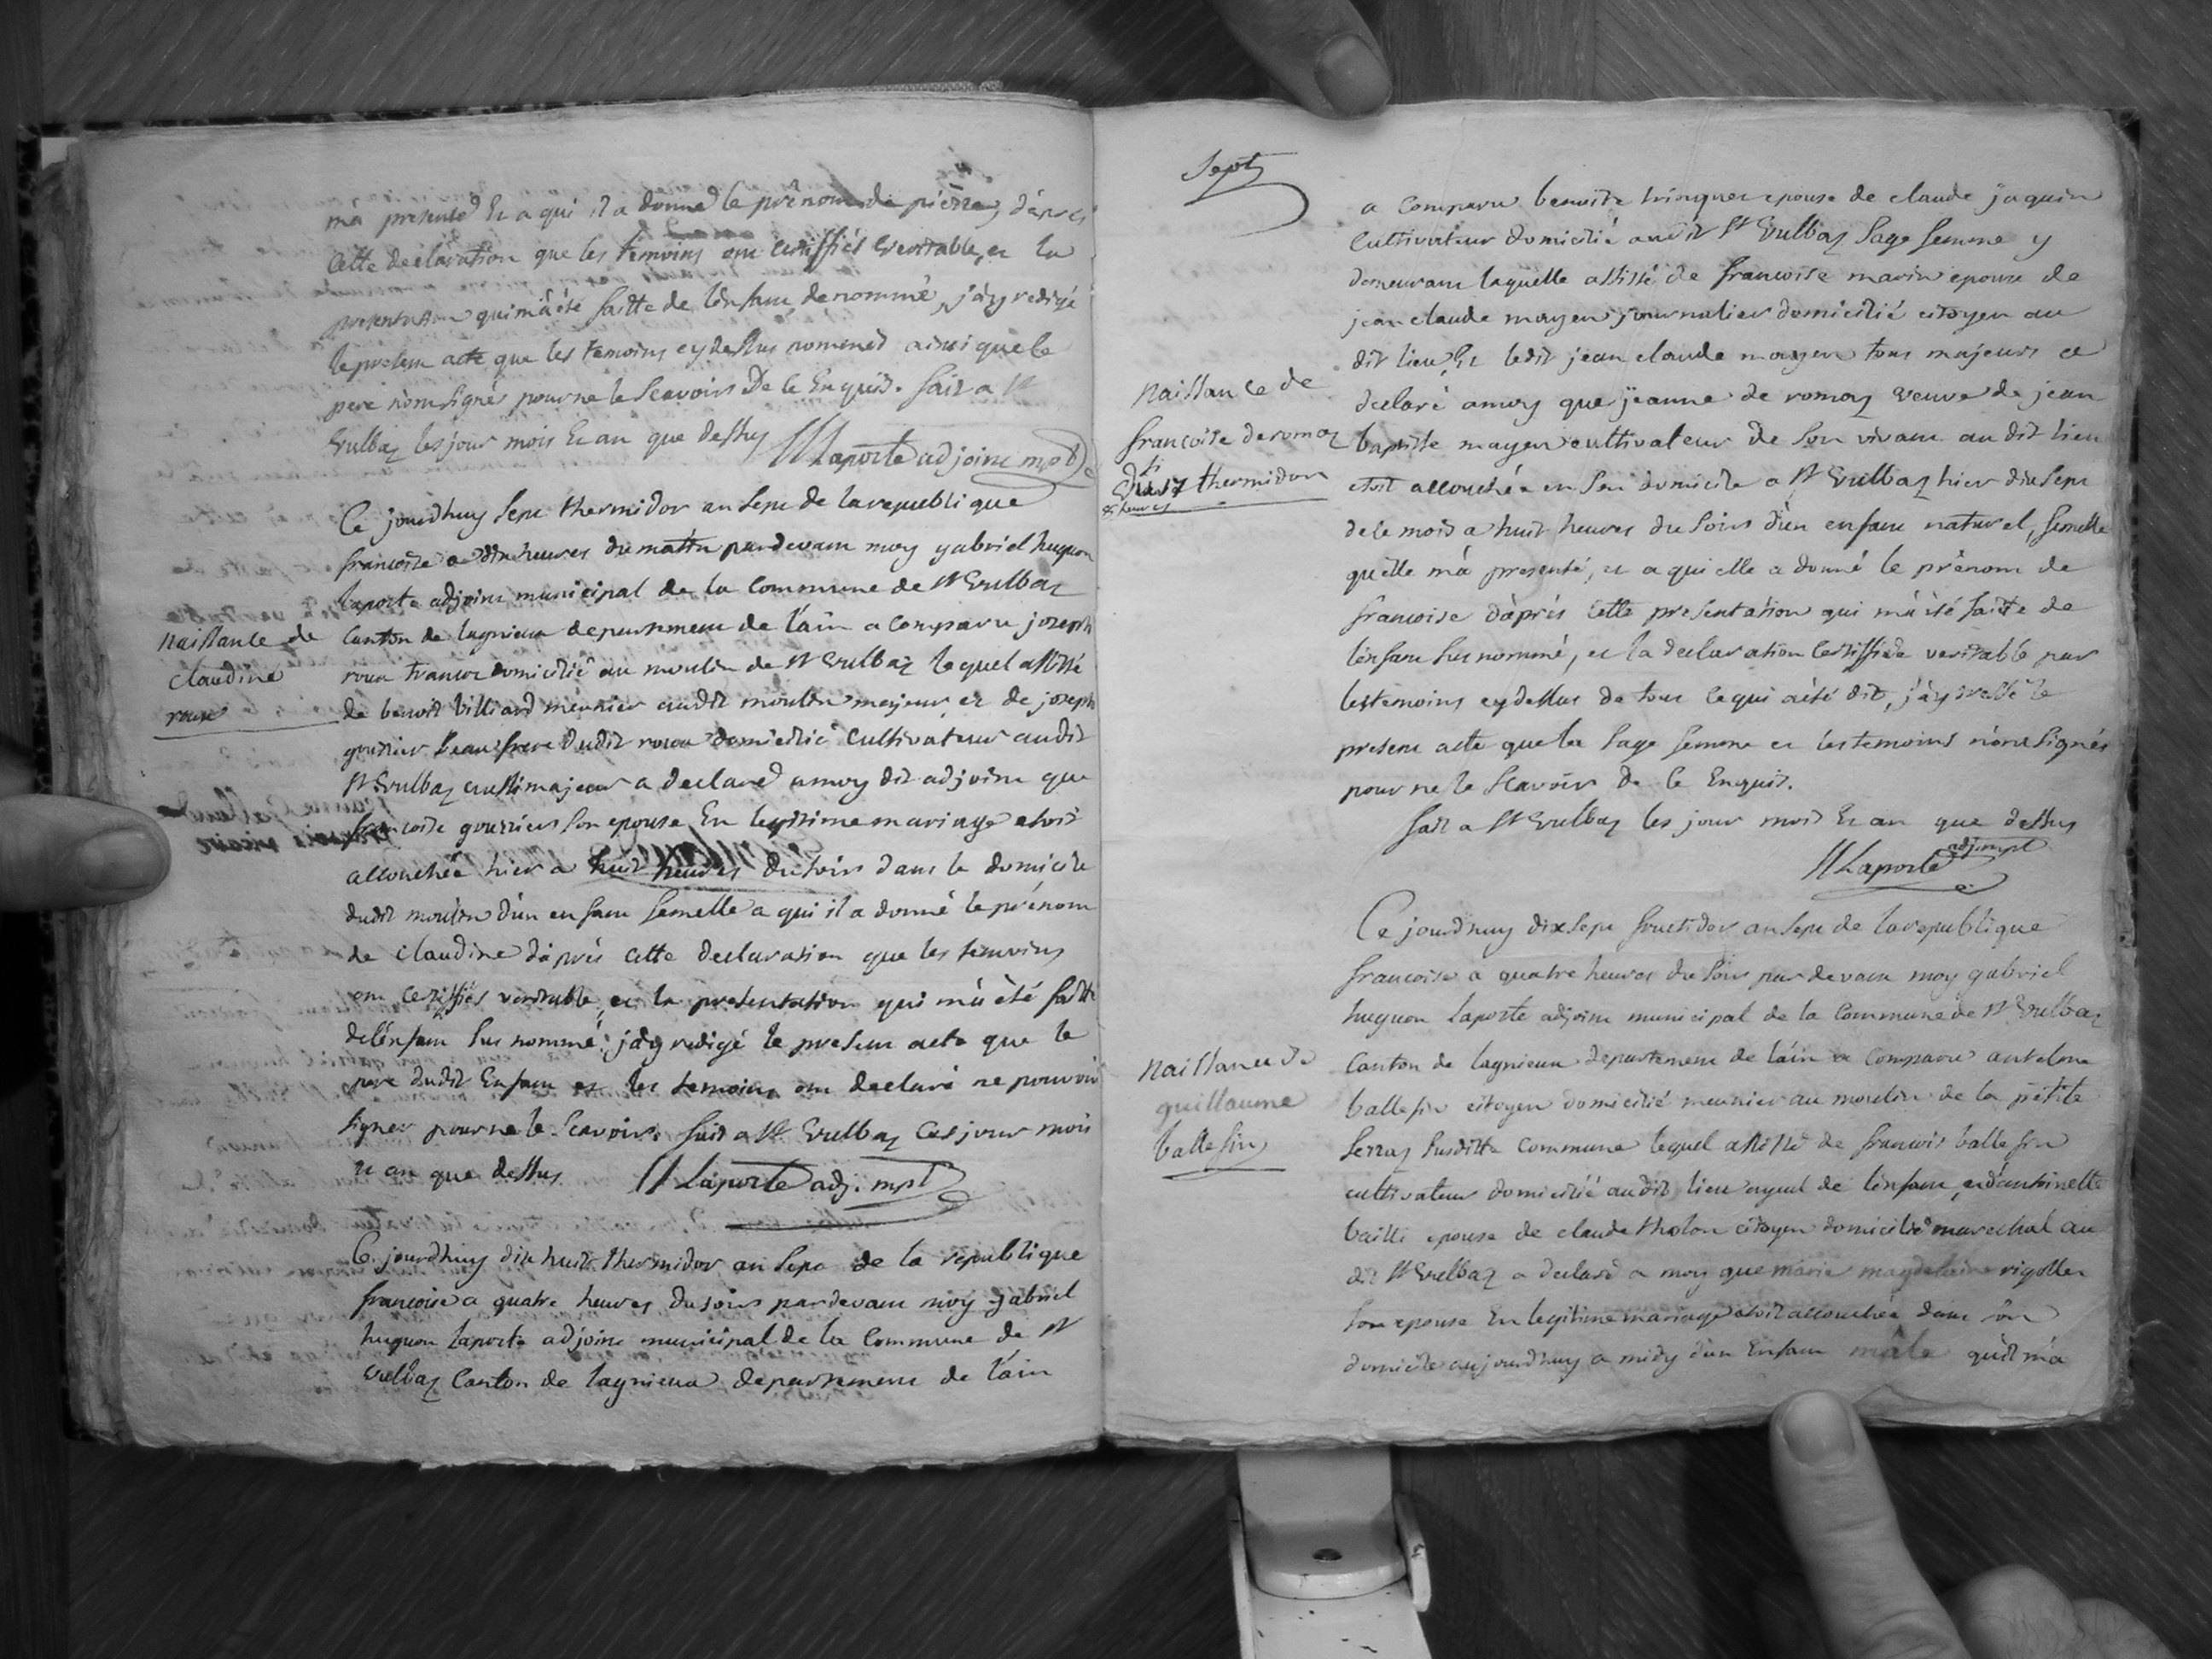 ma presenté Et a qui il a donné le prénom de pierre, d'aprés
cette declaration que les temoins ont certiffiés veritable, et la
presentation qui m'a été faitte de l'enfant denommé, j'ay redigé
le present acte que les temoins cydessus nommés ainsi que le
pere n'ont signés pour ne le scavoir De ce Enquis. fait a St
Vulbaz les jour mois Et an que dessus
H Laporte adjoint mpal
Ce jourdhuy sept thermidor an sept de la republique
francoise a dix heures du matin pardevant moy gabriel huguon
laporte adjoint municipal de la commune de St Vulbaz
naissance de
claudine
roux
canton de lagnieux departement de l'ain a comparu joseph
roux domicilié au moulin de St Vulbaz lequel assisté
de benoit billiard meunier audit moulin majeur et de joseph
gourrier beau frere dudit roux domicilié cultivateur audit
St Vulbaz aussi majeur a declaré a moy dit adjoint que
francoise gourrier son epouse En legitime mariage etoit
accouchée hier a huit heures du soir dans le domicile
dudit moulin d'un enfant femelle a qui il a donné le prénom
de claudine d'aprés cette declaration que les temoins
ont certiffiés veritable, et la presentation qui m'a été faitte
de l'enfant sus nommé, j'ay redigé le present acte que le
pere dudit Enfant et les temoins ont declaré ne pouvoir
signer pour ne le scavoir. fait a St Vulbaz les jour mois
et an que dessus H Laporte adj. mpl
Ce jourdhuy dix huit thermidor an sept de la republique
francoise a quatre heures du soir pardevant moy gabriel
huguon laporte adjoint municipal de la commune de St
Vulbaz canton de lagnieux departement de l'ain
Sept
a comparu benoite epouse de claude jaquin
cultivateur domicilié audit St Vulbaz sage femme y
demeurant laquelle assisté de francoise marin epouse de
jean claude moyen journalier domicilié citoyen au
dit lieu, Et ledit jean claude moyen tous majeurs a
naissance de
francoise deromaz
du 17 thermidor
8 heures
declaré amoy que jeanne de romaz veuve de jean
baptiste mayen cultivateur de son vivant au dit lieu
etoit accouchée en son domicile a St Vulbaz hier dix sept
de ce mois a huit heures du soir d'un enfant naturel, femelle
qu'elle m'a presenté, et a qui elle a donné le prénom de
francoise d'aprés cette presentation qui m'a été faitte de
l'enfant sus nommé, et la declaration certiffiée veritable par
les temoins cydessus de tout ce qui a été dit, j'ay dressé le
present acte que la sage femme et les temoins n'ont signés
pour ne le scavoir de ce Enquis.
fait a St Vulbaz les jour mois Et an que dessus
H Laporte adj. mpl
Ce jourdhuy dix sept fructidor an sept de la republique
francoise a quatre heures du soir par devant moy gabriel
huguon laporte adjoint municipal de la commune de St Vulbaz
naissance de
guillaume
ballefin
canton de lagnieux departement de l'ain a comparu antelme
ballefin citoyen domicilié meunier au moulin de la petite
serraz susditte commune lequel assisté de francois ballefin
cultivateur domicilié audit lieu ayeul de l'enfant, et d'antoinette
bailli epouse de claude tholon citoyen domicilié marechal au
dit St Vulbaz a declaré a moy que marie magdelaine rigollet
son epouse En legitime mariage etoit accouchée dans son
domicile aujourdhuy a midy d'un Enfant mâle qu'il m'a